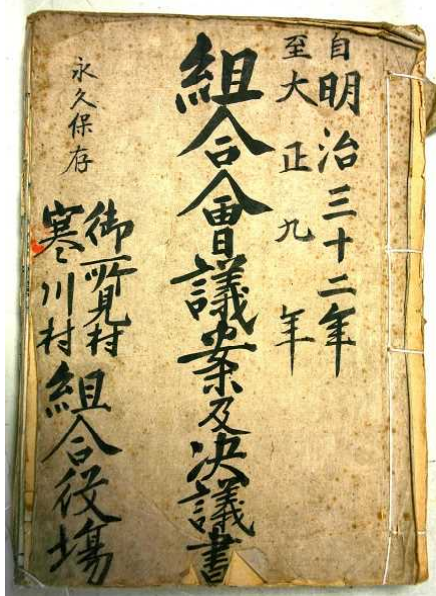 自明治三十二年
至大正九年
組合會議案及决議書
永久保存
御所見村
寒川村
組合役場